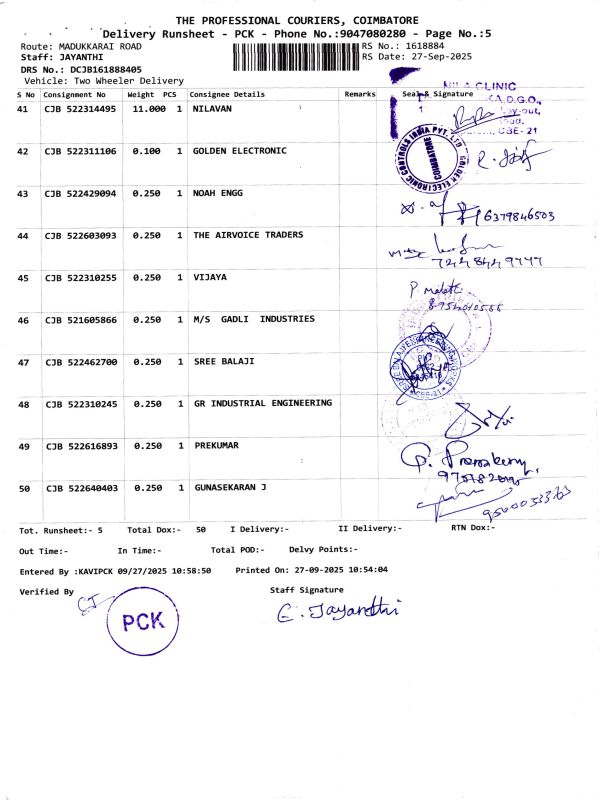 THE PROFESSIONAL COURIERS, COIMBATORE
Delivery Runsheet - PCK - Phone No.:9047080280 - Page No.:5
Route: MADUKKARAI ROAD RS No.: 1618884
Staff: JAYANTHI RS Date: 27-Sep-2025
DRS No.: DCJB161888405
Vehicle: Two Wheeler Delivery
S No Consignment No Weight PCS Consignee Details Remarks Seal & Signature
41 CJB 522314495 11.000 1 NILAVAN
CLINIC
D.G.O.,
CBE- 21
42 CJB 522311106 0.100 1 GOLDEN ELECTRONIC
GOLDEN ELECTRONIC CONTROLS INDIA PVT. LTD
COIMBATORE
43 CJB 522429094 0.250 1 NOAH ENGG 6379846503
44 CJB 522603093 0.250 1 THE AIRVOICE TRADERS
45 CJB 522310255 0.250 1 VIJAYA P. Malathi
46 CJB 521605866 0.250 1 M/S GADLI INDUSTRIES
47 CJB 522462700 0.250 1 SREE BALAJI
48 CJB 522310245 0.250 1 GR INDUSTRIAL ENGINEERING
49 CJB 522616893 0.250 1 PREKUMAR
50 CJB 522640403 0.250 1 GUNASEKARAN J
Tot. Runsheet:- 5 Total Dox:- 50 I Delivery:- II Delivery:- RTN Dox:-
Out Time:- In Time:- Total POD:- Delvy Points:-
Entered By :KAVIPCK 09/27/2025 10:58:50 Printed On: 27-09-2025 10:54:04
Verified By Staff Signature
PCK
E. Jayanthi